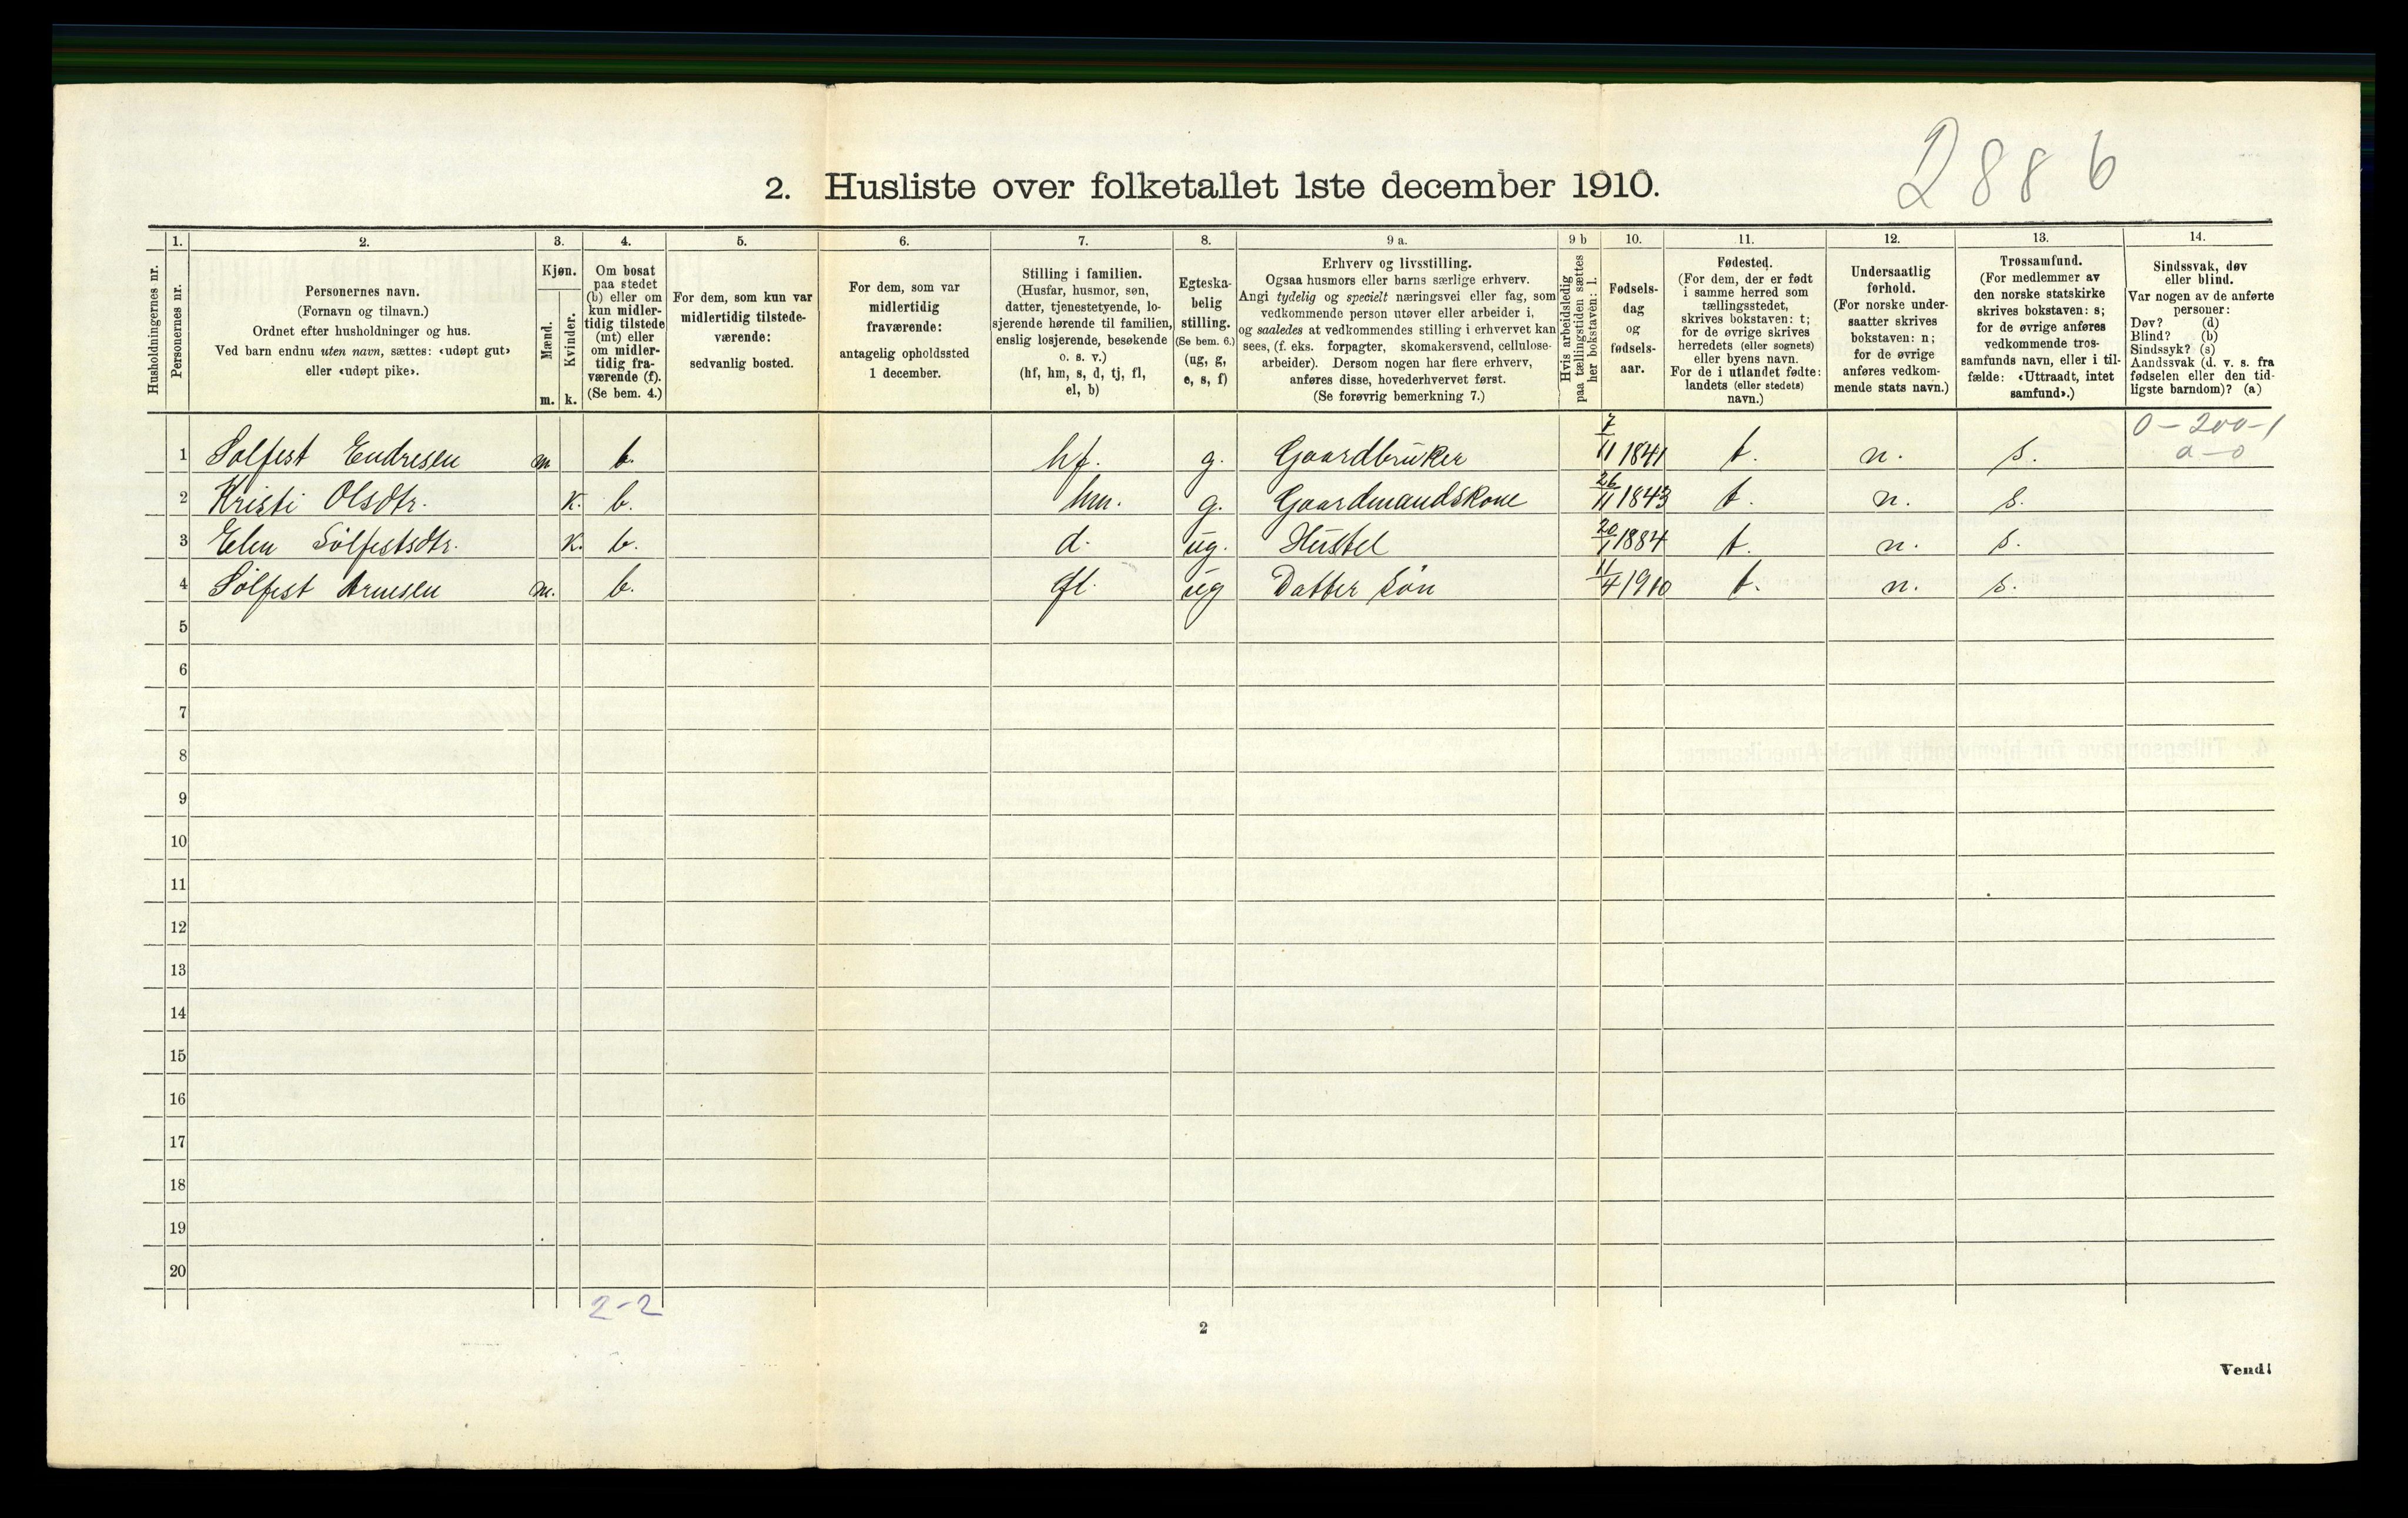 2886
2. Husliste over folketallet 1ste december 1910.
Husholdningernes nr.
1. Personernes nr.
2. Personernes navn.
(Fornavn og tilnavn.)
Ordnet efter husholdninger og hus.
Ved barn endnu uten navn, sættes: «udøpt gut»
eller «udøpt pike».
3. Kjøn.
Mænd. m.
Kvinder. k.
4. Om bosat
paa stedet
(b) eller om
kun midler-
tidig tilstede
(mt) eller
om midler-
tidig fra-
værende (f).
(Se bem. 4.)
5. For dem, som kun var
midlertidig tilstede-
værende:
sedvanlig bosted.
6. For dem, som var
midlertidig
fraværende:
antagelig opholdssted
1 december.
7. Stilling i familien.
(Husfar, husmor, søn,
datter, tjenestetyende, lo-
sjerende hørende til familien,
enslig losjerende, besøkende
o. s. v.)
(hf, hm, s, d, tj, fl,
el, b)
8. Egteska-
belig
stilling.
(Se bem. 6.)
(ug, g,
e, s, f)
9 a. Erhverv og livsstilling.
Ogsaa husmors eller barns særlige erhverv.
Angi tydelig og specielt næringsvei eller fag, som
vedkommende person utøver eller arbeider i,
og saaledes at vedkommendes stilling i erhvervet kan
sees, (f. eks. forpagter, skomakersvend, cellulose-
arbeider). Dersom nogen har flere erhverv,
anføres disse, hovederhvervet først.
(Se forøvrig bemerkning 7.)
9 b Hvis arbeidsledig
paa tællingstiden sættes
her bokstaven: l.
10. Fødsels-
dag
og
fødsels-
aar.
11. Fødested.
(For dem, der er født
i samme herred som
tællingsstedet,
skrives bokstaven: t;
for de øvrige skrives
herredets (eller sognets)
eller byens navn.
For de i utlandet fødte:
landets (eller stedets)
navn.)
12. Undersaatlig
forhold.
(For norske under-
saatter skrives
bokstaven: n;
for de øvrige
anføres vedkom-
mende stats navn.)
13. Trossamfund.
(For medlemmer av
den norske statskirke
skrives bokstaven: s;
for de øvrige anføres
vedkommende tros-
samfunds navn, eller i til-
fælde: «Uttraadt, intet
samfund».)
14. Sindssvak, døv
eller blind.
Var nogen av de anførte
personer:
Døv? (d)
Blind? (b)
Sindssyk? (s)
Aandssvak (d. v. s. fra
fødselen eller den tid-
ligste barndom)? (a)
0-200-1
a-0
1 Solfest Endresen m b. hf. g. Gaardbruker 7/11 1841 t. n. s.
2 Kristi Olsdtr. k. b. hm. g. Gaardmandskone 26/11 1843 t. n. s.
3 Elen Solfestsdtr. k. b. d. ug. Hustel 20/1 1884 t. n. s.
4 Solfest Arnesen m. b. fl. ug Datter søn 11/4 1910 t. n. s.
5
6
7
8
9
10
11
12
13
14
15
16
17
18
19
20
2-2
2
Vend!